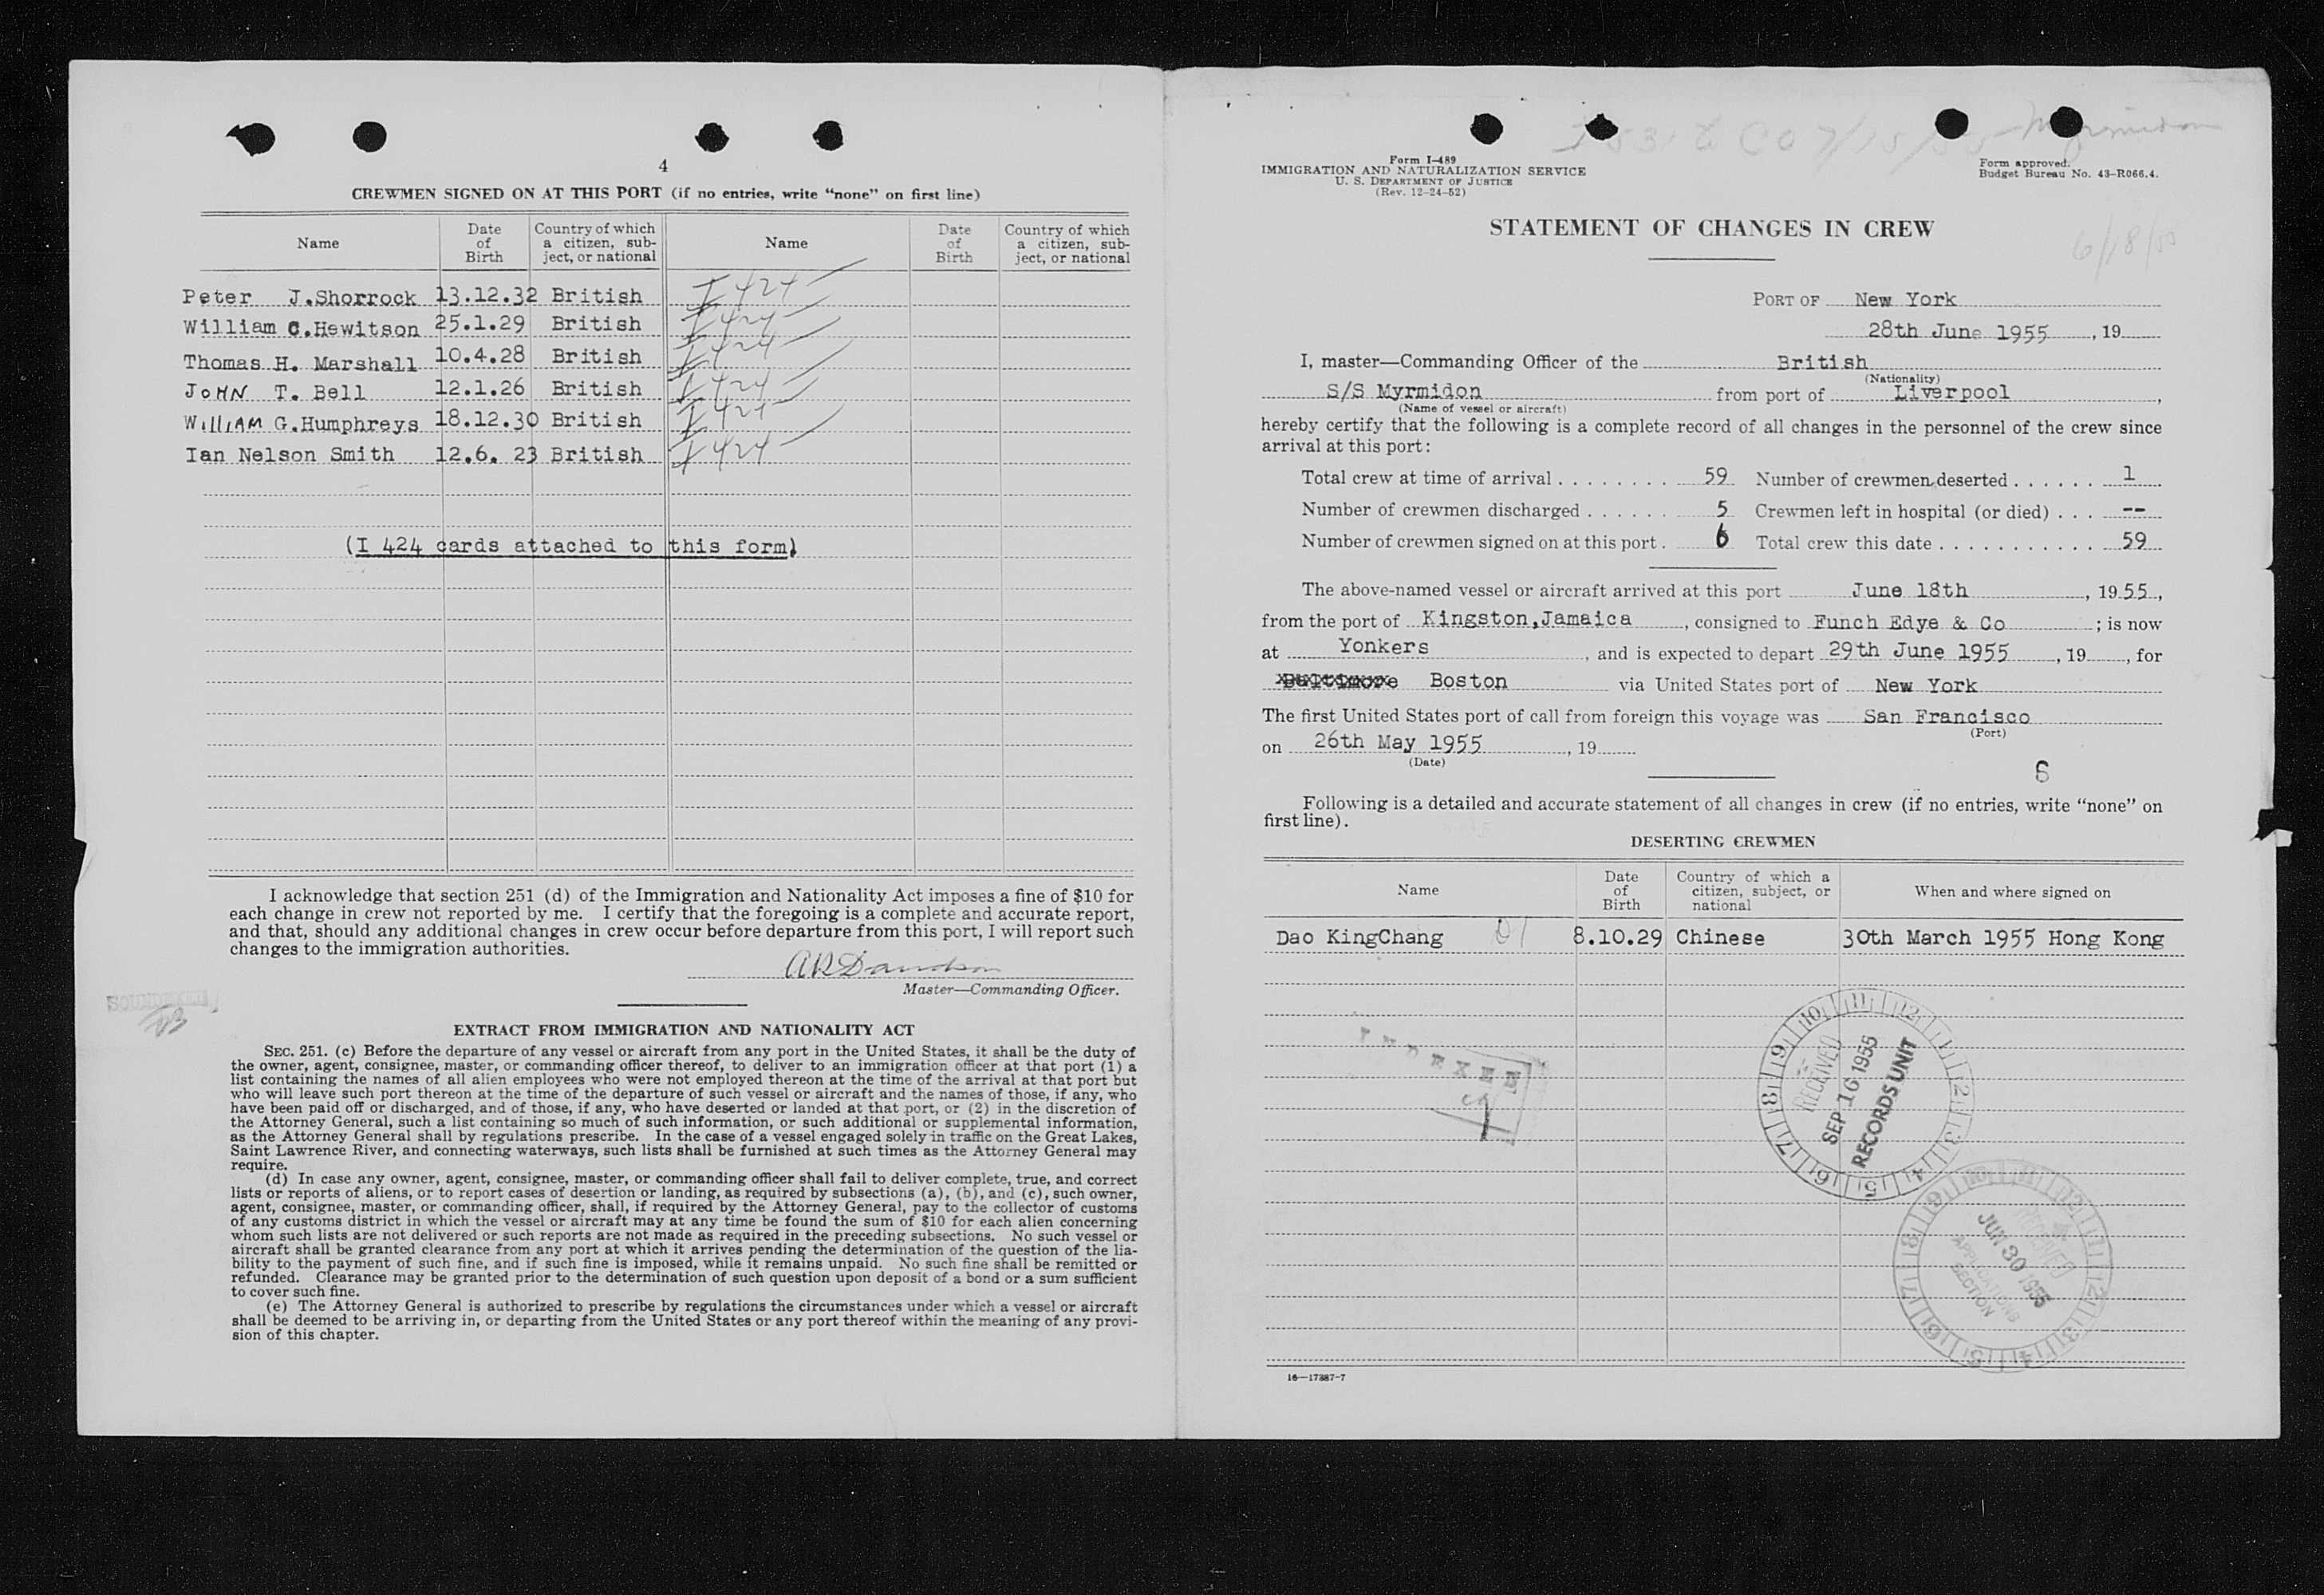 4
CREWMEN SIGNED ON AT THIS PORT (if no entries, write “none” on first line)
Name
Date of Birth
Country of which a citizen, sub-ject, or national
Name
Date of Birth
Country of which a citizen, sub-ject, or national
Peter J.Shorrock 13.12.32 British I 424
William C.Hewitson 25.1.29 British I 424
Thomas H. Marshall 10.4.28 British I 424
JOHN T. Bell 12.1.26 British I 424
WILLIAM G.Humphreys 18.12.30 British I 424
Ian Nelson Smith 12.6. 23 British I 424
(I 424 cards attached to this form)
I acknowledge that section 251 (d) of the Immigration and Nationality Act imposes a fine of $10 for
each change in crew not reported by me. I certify that the foregoing is a complete and accurate report,
and that, should any additional changes in crew occur before departure from this port, I will report such
changes to the immigration authorities.
Master—Commanding Officer.
EXTRACT FROM IMMIGRATION AND NATIONALITY ACT
SEC. 251. (c) Before the departure of any vessel or aircraft from any port in the United States, it shall be the duty of
the owner, agent, consignee, master, or commanding officer thereof, to deliver to an immigration officer at that port (1) a
list containing the names of all alien employees who were not employed thereon at the time of the arrival at that port but
who will leave such port thereon at the time of the departure of such vessel or aircraft and the names of those, if any, who
have been paid off or discharged, and of those, if any, who have deserted or landed at that port, or (2) in the discretion of
the Attorney General, such a list containing so much of such information, or such additional or supplemental information,
as the Attorney General shall by regulations prescribe. In the case of a vessel engaged solely in traffic on the Great Lakes,
Saint Lawrence River, and connecting waterways, such lists shall be furnished at such times as the Attorney General may
require.
(d) In case any owner, agent, consignee, master, or commanding officer shall fail to deliver complete, true, and correct
lists or reports of aliens, or to report cases of desertion or landing, as required by subsections (a), (b), and (c), such owner,
agent, consignee, master, or commanding officer, shall, if required by the Attorney General, pay to the collector of customs
of any customs district in which the vessel or aircraft may at any time be found the sum of $10 for each alien concerning
whom such lists are not delivered or such reports are not made as required in the preceding subsections. No such vessel or
aircraft shall be granted clearance from any port at which it arrives pending the determination of the question of the lia-
bility to the payment of such fine, and if such fine is imposed, while it remains unpaid. No such fine shall be remitted or
refunded. Clearance may be granted prior to the determination of such question upon deposit of a bond or a sum sufficient
to cover such fine.
(e) The Attorney General is authorized to prescribe by regulations the circumstances under which a vessel or aircraft
shall be deemed to be arriving in, or departing from the United States or any port thereof within the meaning of any provi-
sion of this chapter.
7/15/55 Myrmidon
Form I-489
IMMIGRATION AND NATURALIZATION SERVICE
U. S. DEPARTMENT OF JUSTICE
(Rev. 12-24-52)
Form approved.
Budget Bureau No. 43-R066.4.
STATEMENT OF CHANGES IN CREW
6/18/55
PORT OF New York
28th June 1955, 19
I, master—Commanding Officer of the British
(Nationality)
S/S Myrmidon from port of Liverpool,
(Name of vessel or aircraft)
hereby certify that the following is a complete record of all changes in the personnel of the crew since
arrival at this port:
Total crew at time of arrival . . . . . . . . 59 Number of crewmen deserted . . . . . . 1
Number of crewmen discharged . . . . . . 5 Crewmen left in hospital (or died) . . . --
Number of crewmen signed on at this port . 6 Total crew this date . . . . . . . . . . . . 59
The above-named vessel or aircraft arrived at this port June 18th, 1955,
from the port of Kingston,Jamaica, consigned to Funch Edye & Co; is now
at Yonkers, and is expected to depart 29th June 1955, 19, for
Baltimore Boston via United States port of New York
The first United States port of call from foreign this voyage was San Francisco
(Port)
on 26th May 1955, 19
(Date)
S
Following is a detailed and accurate statement of all changes in crew (if no entries, write “none” on
first line).
DESERTING CREWMEN
Name
Date of Birth
Country of which a citizen, subject, or national
When and where signed on
Dao KingChang 8.10.29 Chinese 30th March 1955 Hong Kong
INDEXED
RECEIVED
SEP 16 1955
RECORDS UNIT
RECEIVED
JUN 30 1955
APPLICATIONS
SECTION
16—17387-7